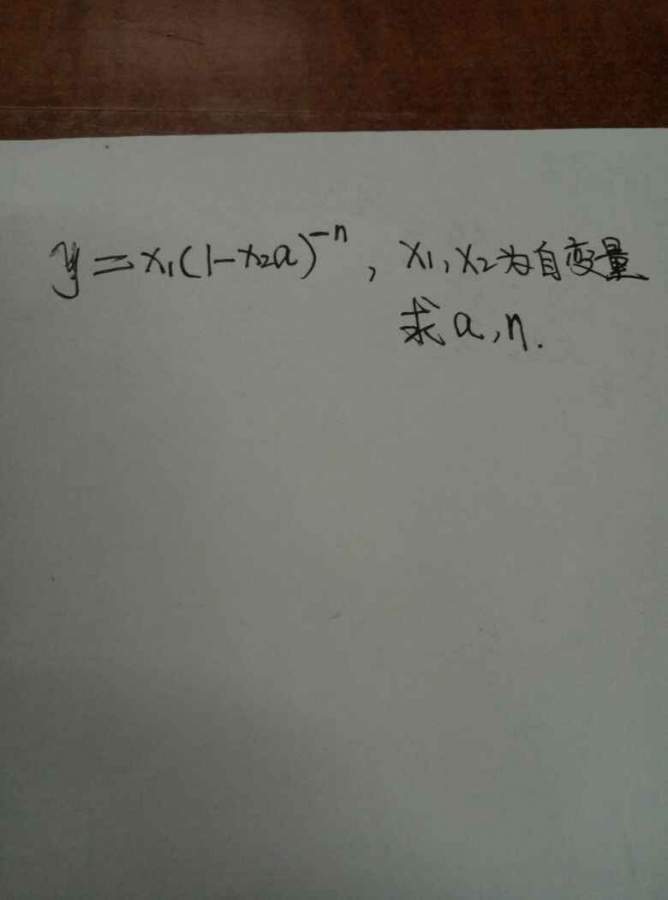 y=x₁(1-x₂a)⁻ⁿ, x₁,x₂为自变量
求a,n.